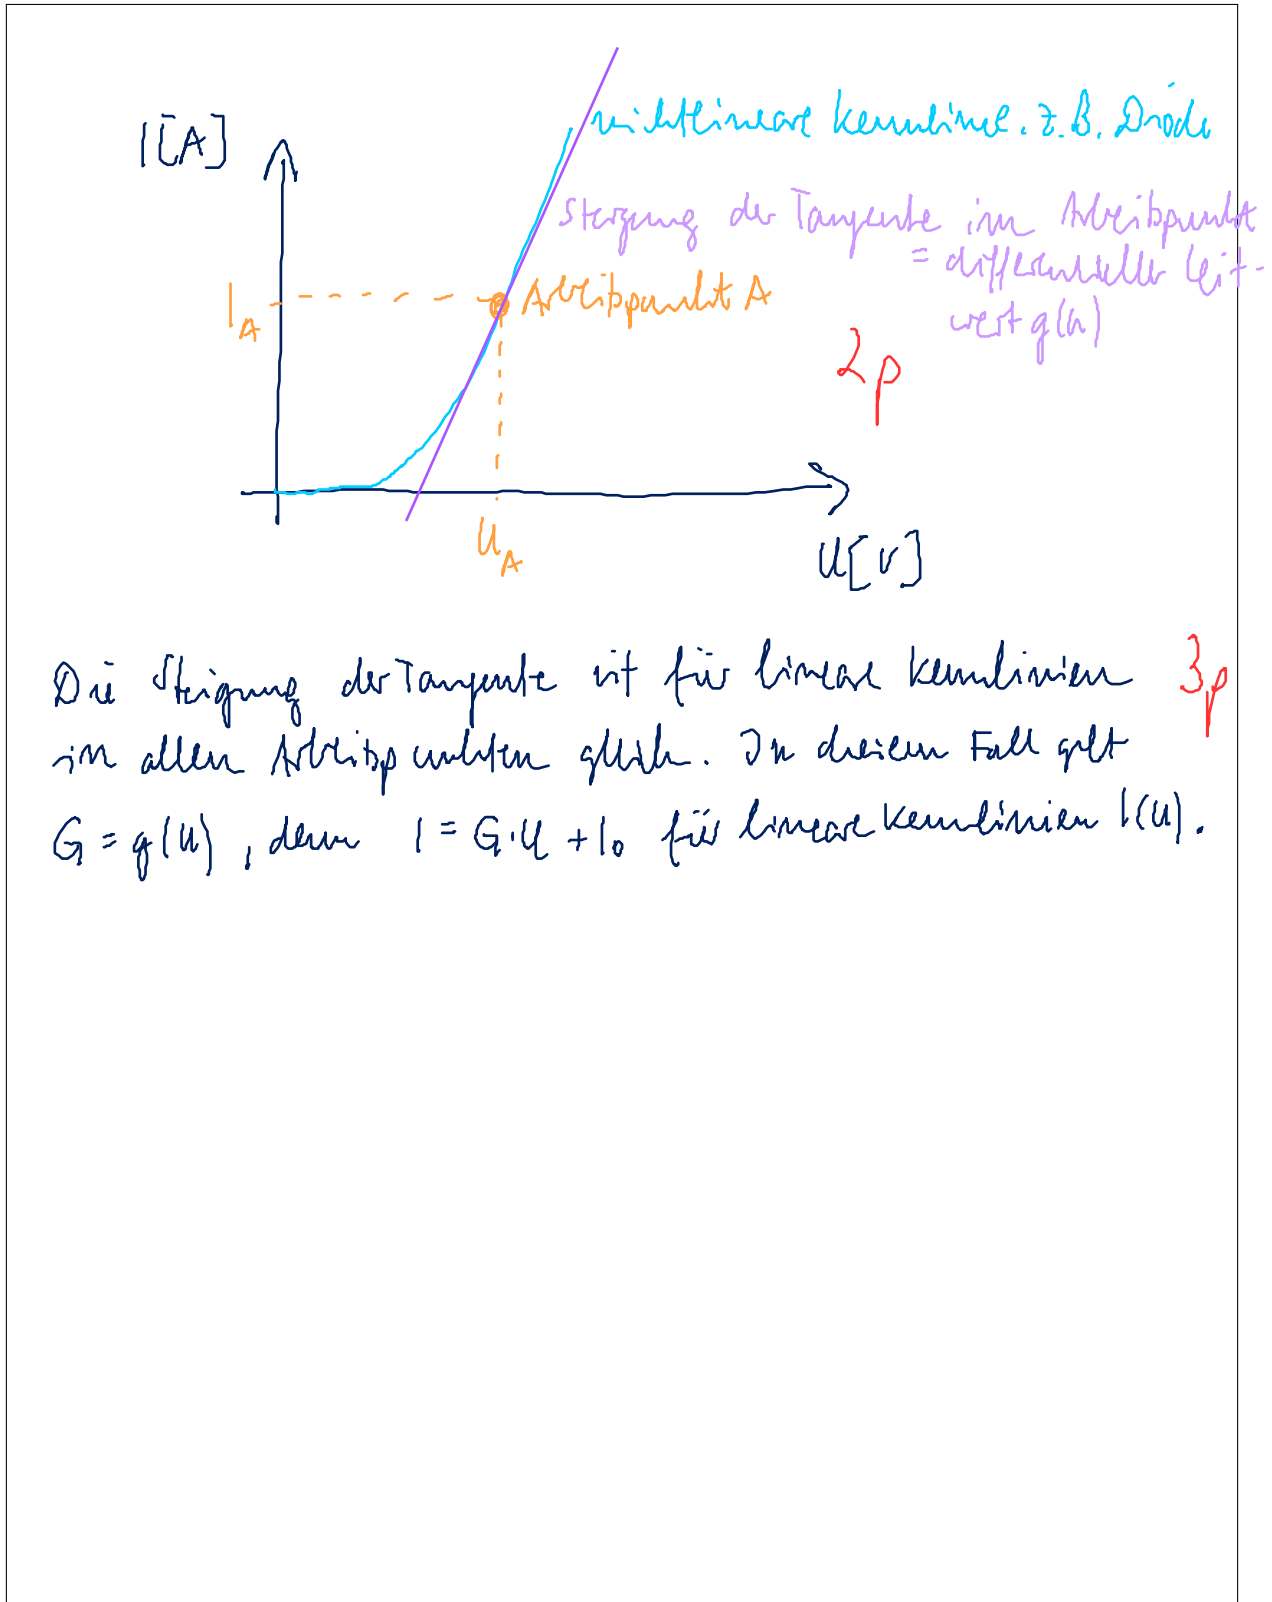 I[A]
nichtlineare Kennlinie, z.B. Diode
Steigung der Tangente im Arbeitspunkt
= differentieller Leit-
wert g(u)
I_A
Arbeitspunkt A
2p
U_A
U[V]
Die Steigung der Tangente ist für lineare Kennlinien
3p
in allen Arbeitspunkten gleich. In diesem Fall gilt
G = g(u), denn I = G·U + I₀ für lineare Kennlinien I(U).